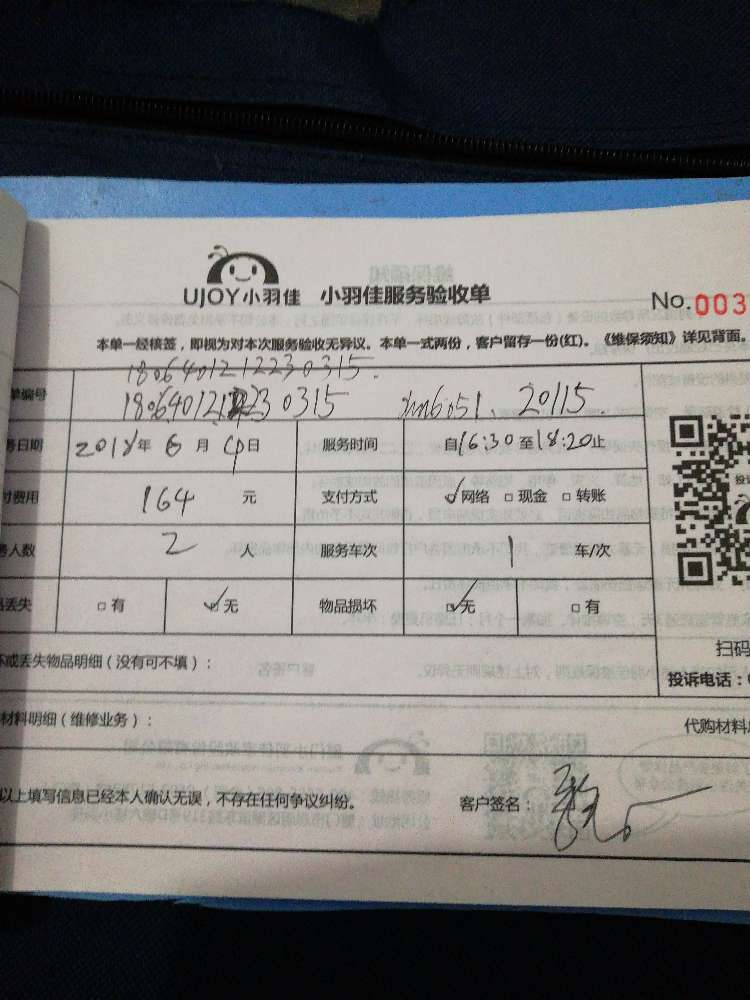 UJOY小羽佳 小羽佳服务验收单 No.003
本单一经核签，即视为对本次服务验收无异议。本单一式两份，客户留存一份(红)。《维保须知》详见背面。
1806401212230315.
单编号 18064012 230315 xm6051. 20115.
务日期 2018年 6 月 4日 服务时间 自16:30至18:20止
付费用 164 元 支付方式 ☑网络 □现金 □转账
务人数 2 人 服务车次 1 车/次
品丢失 □有 ☑无 物品损坏 ☑无 □有
坏或丢失物品明细（没有可不填）： 扫码
投诉电话：
材料明细（维修业务）： 代购材料
以上填写信息已经本人确认无误，不存在任何争议纠纷。 客户签名：